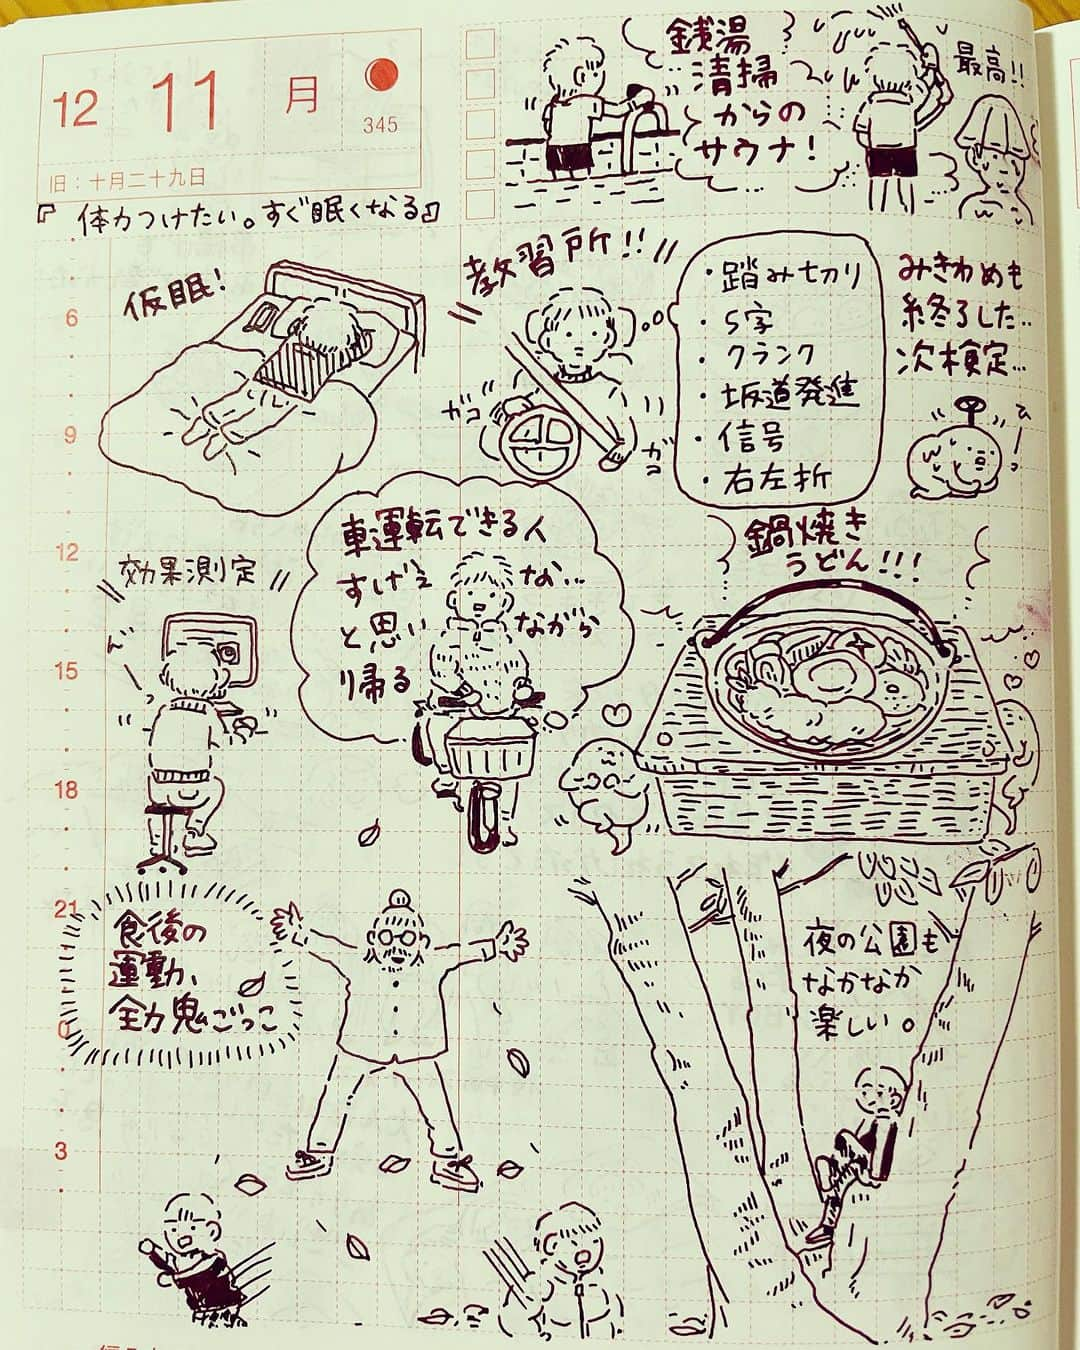 12 11 月
345
旧：十月二十九日
『体力つけたい。すぐ眠くなる』
銭湯
清掃
からの
サウナ！
最高!!
6
9
12
15
18
21
0
3
仮眠！
教習所!!
ガコ
ガコ
・踏み切り
・S字
・クランク
・坂道発進
・信号
・右左折
みきわめも
終了した…
次検定…
ひー！
効果測定
車運転できる人
すげぇな…
と思いながら
帰る
鍋焼き
うどん!!!
食後の
運動、
全力鬼ごっこ
夜の公園も
なかなか
楽しい。